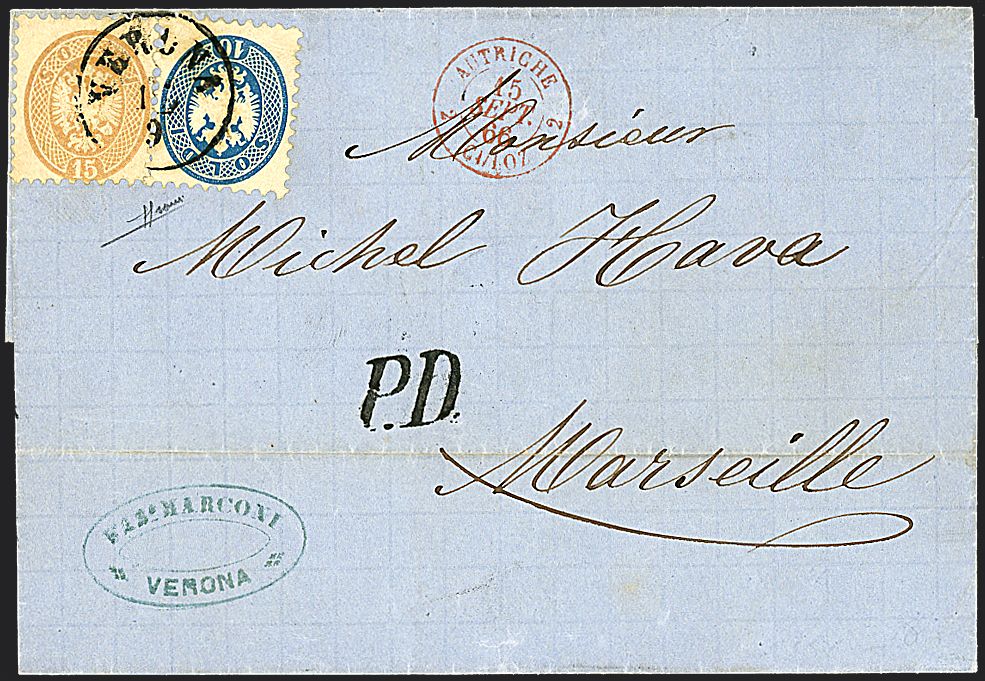 SO
15
10
SOLDI
VERONA
9
AUTRICHE
15
SEPT.
66
2 CULOZ 2
Monsieur
Michel Hava
P.D.
Marseille
MARCONI
VERONA